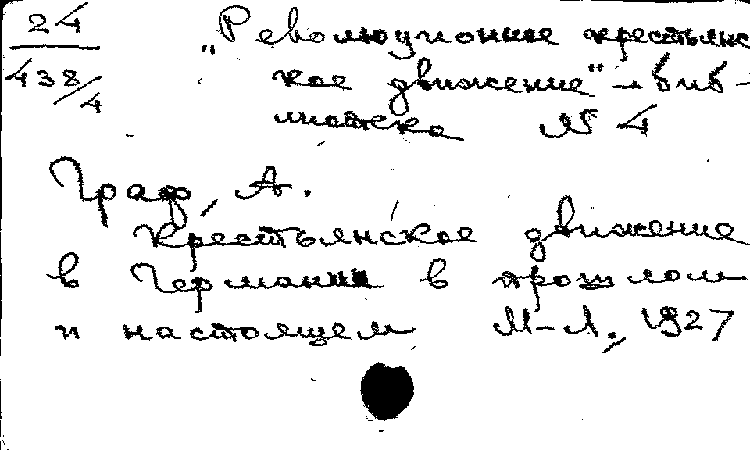 24
438/4
„Революционное крестьянс
кое движение“ – биб-
лиотека № 4
Граф, А.
Крестьянское движение
в Германии в прошлом
и настоящем М-Л., 1927